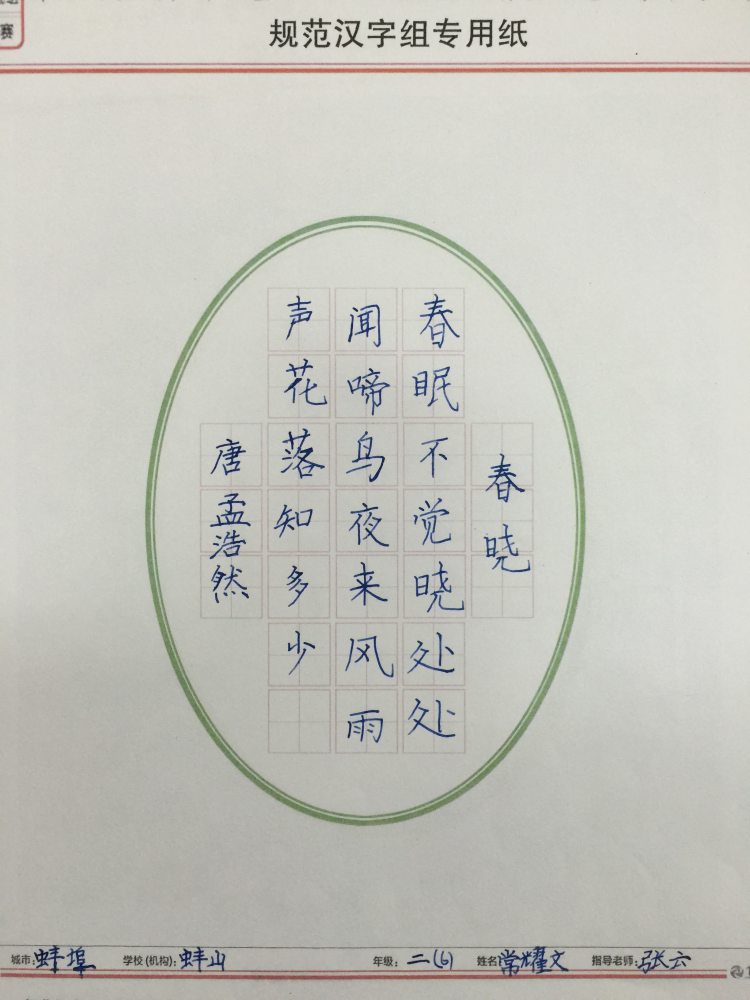 赛
规范汉字组专用纸
春晓
春眠不觉晓处处
闻啼鸟夜来风雨
声花落知多少
唐孟浩然
城市:蚌埠 学校(机构):蚌山 年级:二(6) 姓名常耀文 指导老师:张云